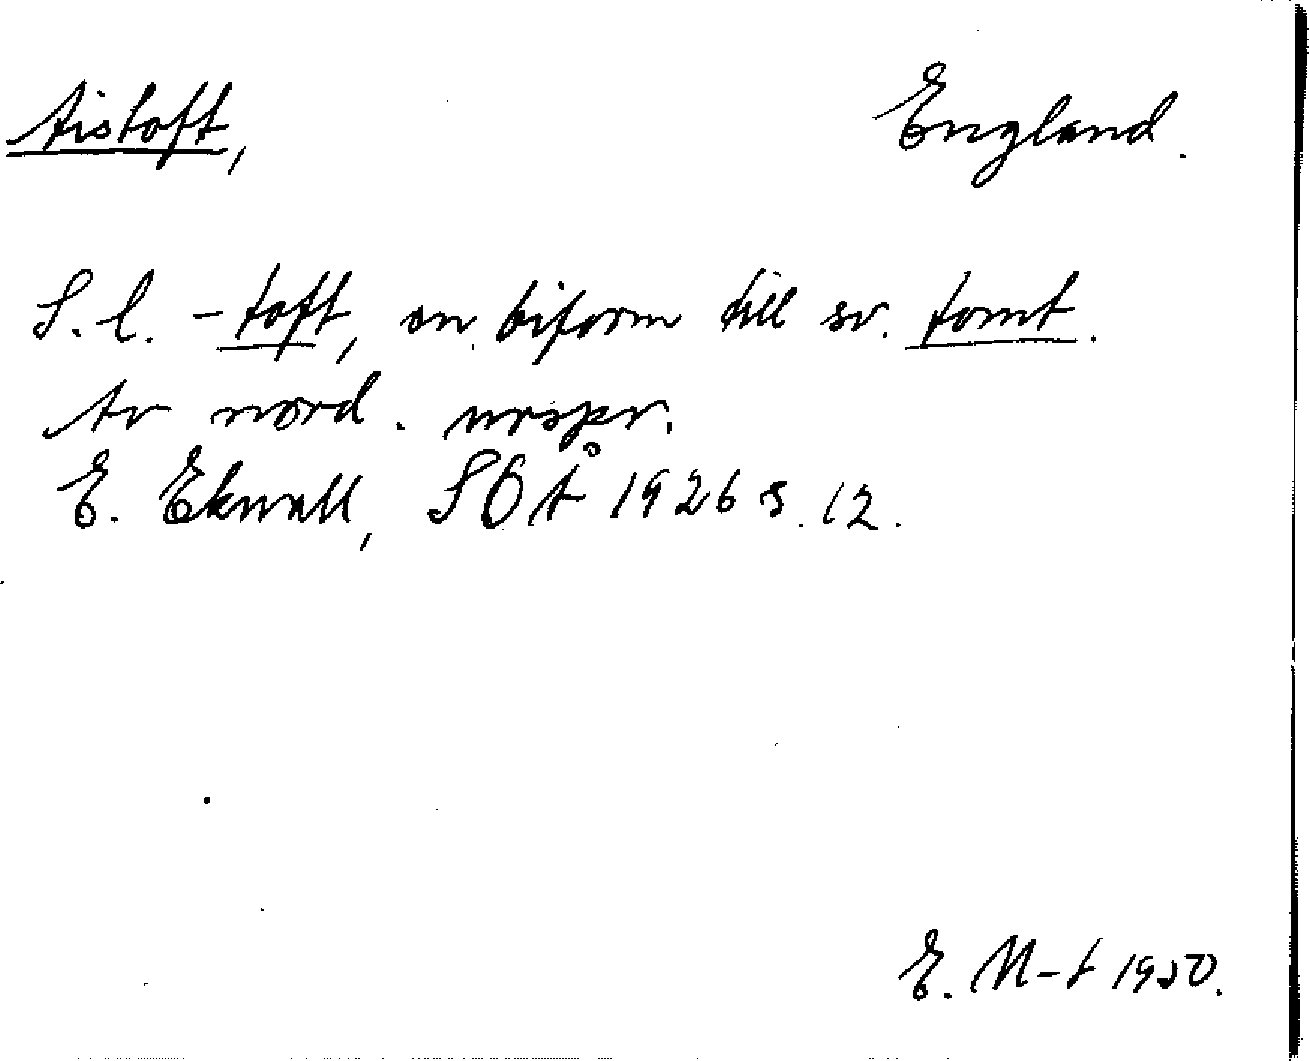 Aistoft, England.
S.l. -toft, en biform till sv. tomt.
Av nord. urspr.
E. Ekwall, SOÅ 1926 s. 12.
E. M-t 1950.